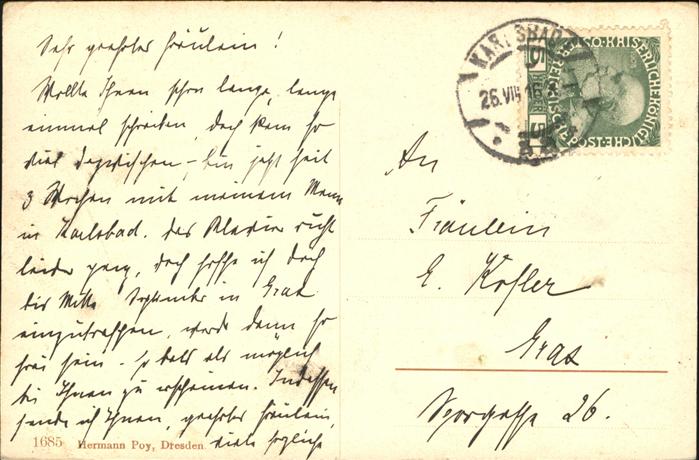 Sehr geehrtes Fräulein!
Wollte Ihnen schon lange, lange
einmal schreiben, doch kam so
viel dazwischen – bin jetzt seit
3 Wochen mit meinem Mann
in Karlsbad. Das Klavier ruht
leider ganz, doch hoffe ich doch
bis Mitte September in Graz
einzutreffen, werde dann so
frei sein – so bald als möglich
bei Ihnen zu erscheinen. Indessen
sende ich Ihnen, geehrtes Fräulein,
viele herzliche
1685 Hermann Poy, Dresden.
KARLSBAD
26.VIII.16
KAISERLICHE KÖNIGL
ÖSTERREICHISCHE POST
5 HELLER 5
An
Fräulein
E. Kofler
Graz
Sporgasse 26.